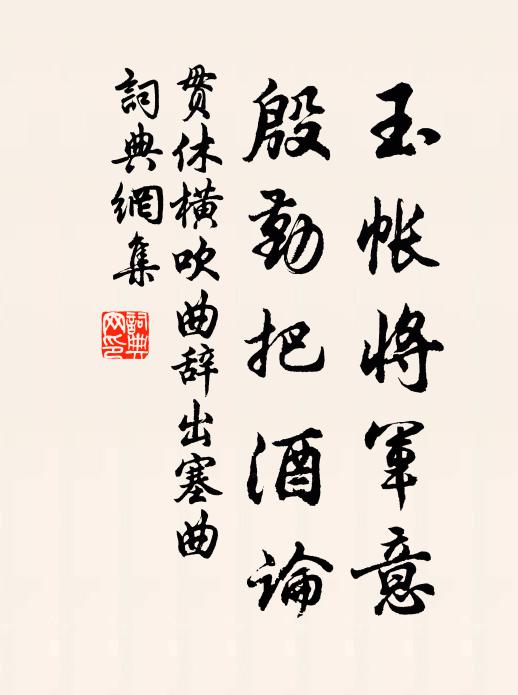 玉帐将军意
殷勤把酒论
贯休横吹曲辞出塞曲
词典網集
詞典网印